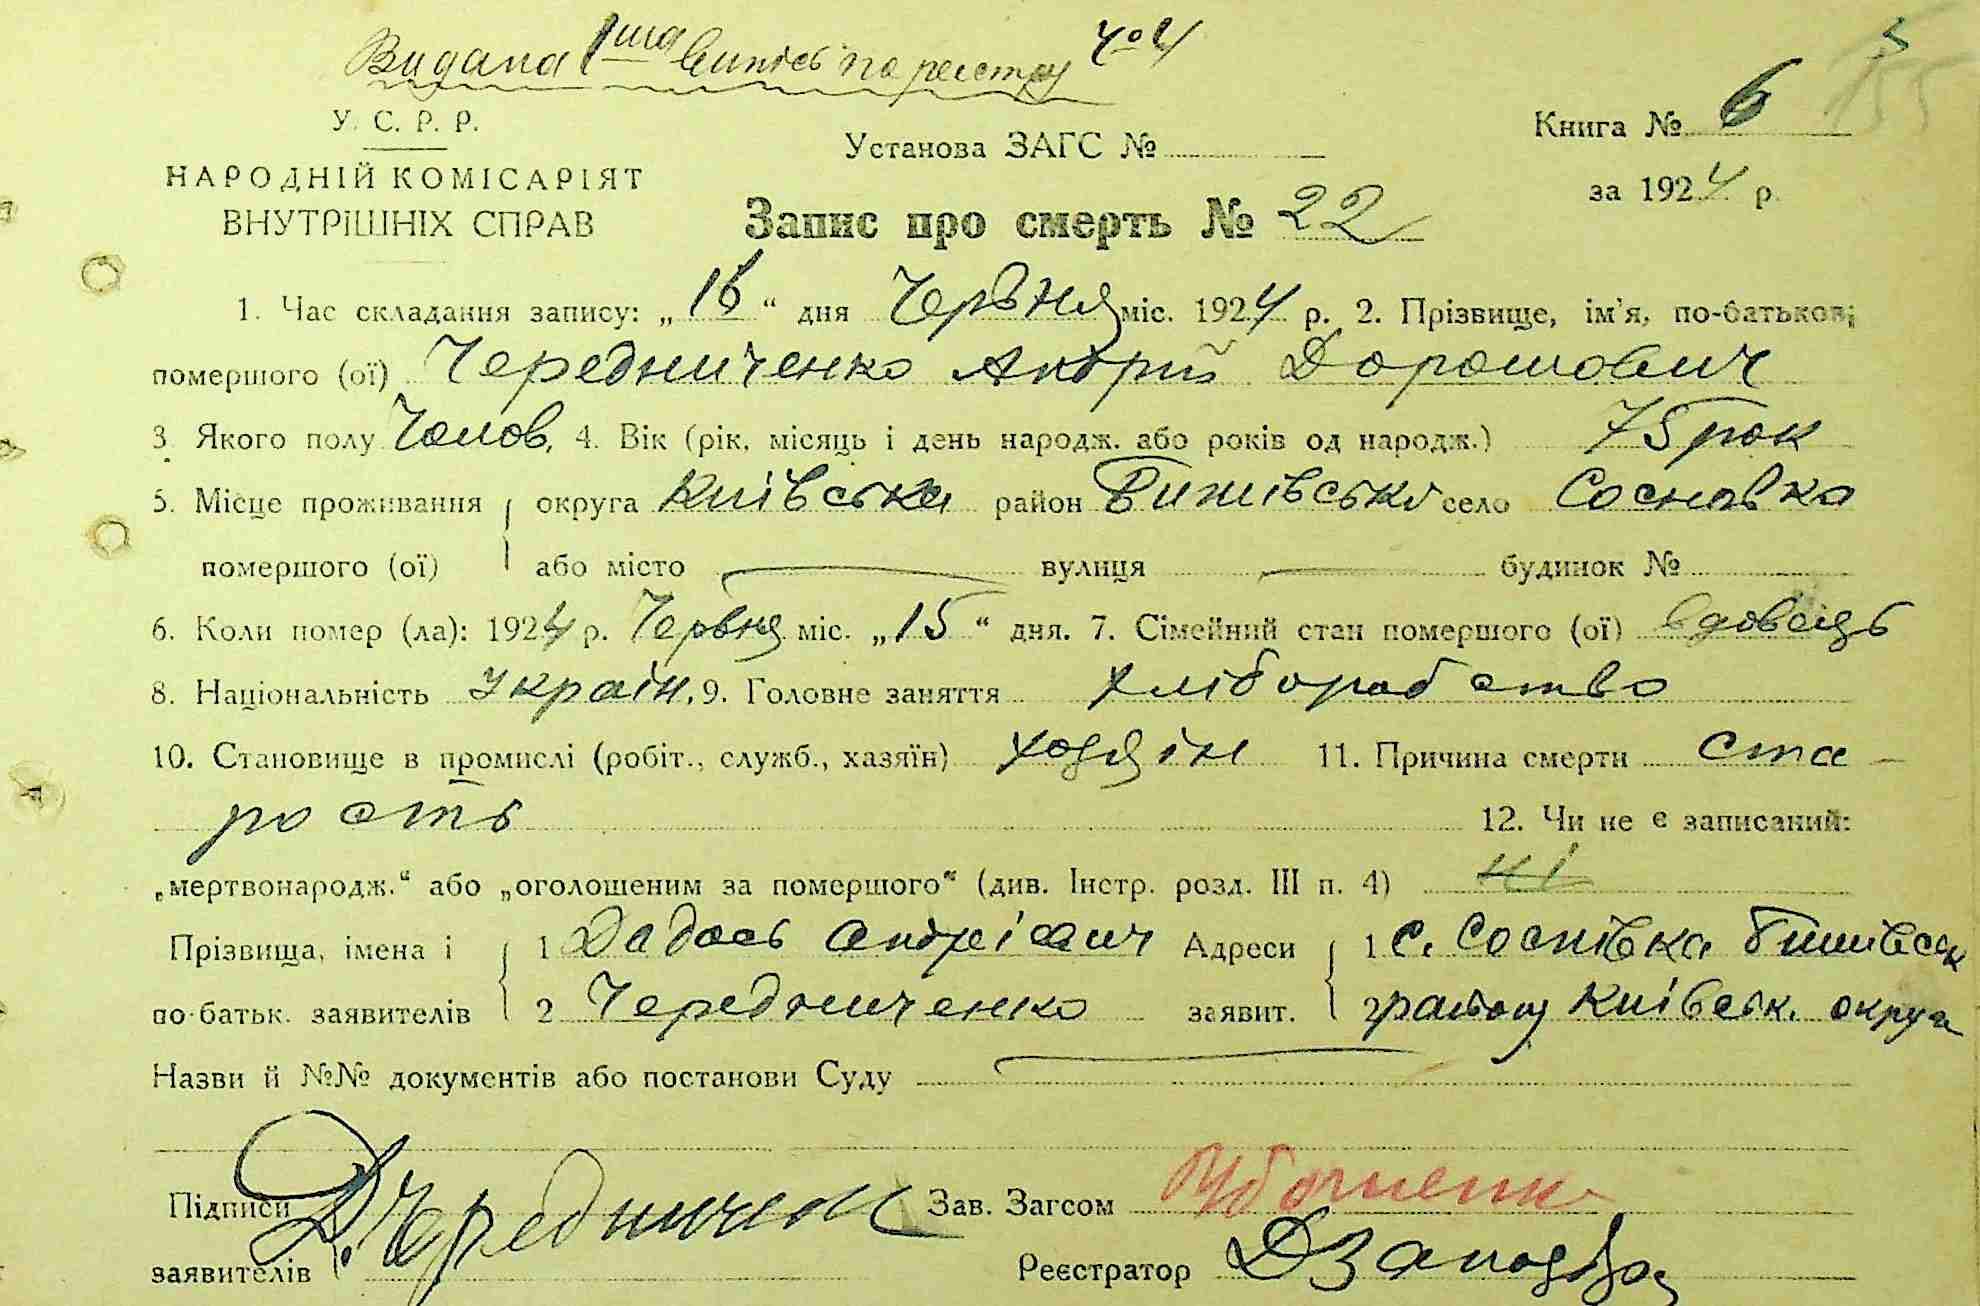 Видана 1ша випісь по реєстру
У. С. Р. Р.
НАРОДНІЙ КОМІСАРІЯТ
ВНУТРІШНІХ СПРАВ
Установа ЗАГС №
Книга № 6
за 1924 р.
155
Запис про смерть № 22
1. Час складання запису: „16“ дня Червня міс. 1924 р. 2. Прізвище, ім'я, по-батькові
помершого (ої) Чередниченко Андрій Дорошович
3. Якого полу Чолов. 4. Вік (рік, місяць і день народж. або років од народж.) 75 рок
5. Місце проживання округа Київська район Бишівськ село Сосновка
помершого (ої) або місто — вулиця — будинок №
6. Коли помер (ла): 1924 р. Червня міс. „15“ дня. 7. Сімейний стан помершого (ої) вдовець
8. Національність україн. 9. Головне заняття хліборобство
10. Становище в промислі (робіт., служб., хазяїн) хозяін 11. Причина смерти ста-
рость 12. Чи не є записаний:
„мертвонародж.“ або „оголошеним за помершого“ (див. Інстр. розд. III п. 4) ні
Прізвища, імена і 1 Андрієвич Адреси 1 с. Соснівка Бишівськ
по-батьк. заявителів 2 Чередниченко заявит. 2 району Київськ. округи
Назви й №№ документів або постанови Суду —
Підписи Д. Чередниченк Зав. Загсом
заявителів Реєстратор